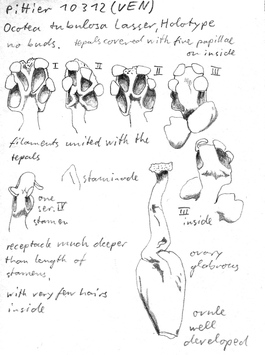 Pittier 10312 (VEN)
Ocotea tubulosa Lasser, Holotype
no buds. tepals covered with fine papillae
on inside
I II I III
filaments united with the
tepals
staminode
one
ser. IV
stamen
III
inside
receptacle much deeper
than length of
stamens.
ovary
glabrous
with very few hairs
inside
ovule
well
developed